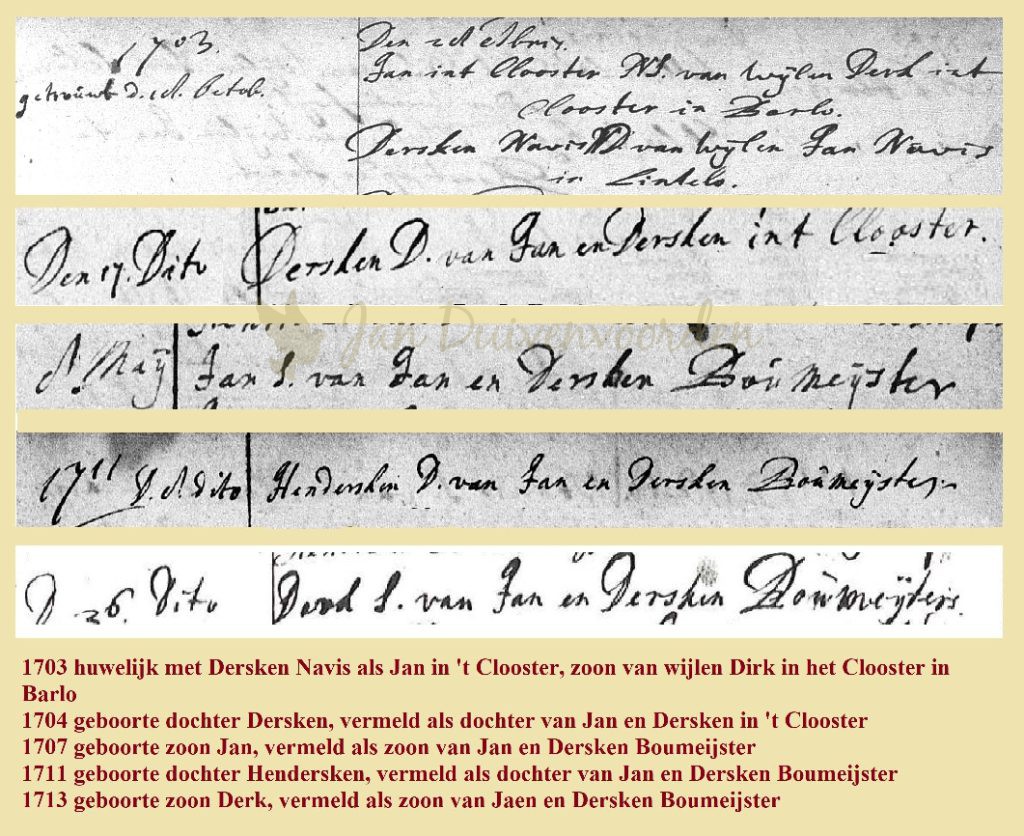 1703.
getrouwt d. Octob.
Den
Jan int Clooster NS. van wijlen Derk int
Clooster in Barlo.
Dersken Navis ND. van wijlen Jan Navis
in Lintelo.
Den 17. Dito Dersken D. van Jan en Dersken int Clooster.
Jan Duivenvoorden
Maij Jan S. van Jan en Dersken Boúmeijster
1711 D. dito Hendersken D. van Jan en Dersken Boúmeijster
D 26. Dito Derck S. van Jan en Dersken
1703 huwelijk met Dersken Navis als Jan in 't Clooster, zoon van wijlen Dirk in het Clooster in
Barlo
1704 geboorte dochter Dersken, vermeld als dochter van Jan en Dersken in 't Clooster
1707 geboorte zoon Jan, vermeld als zoon van Jan en Dersken Boumeijster
1711 geboorte dochter Hendersken, vermeld als dochter van Jan en Dersken Boumeijster
1713 geboorte zoon Derk, vermeld als zoon van Jaen en Dersken Boumeijster